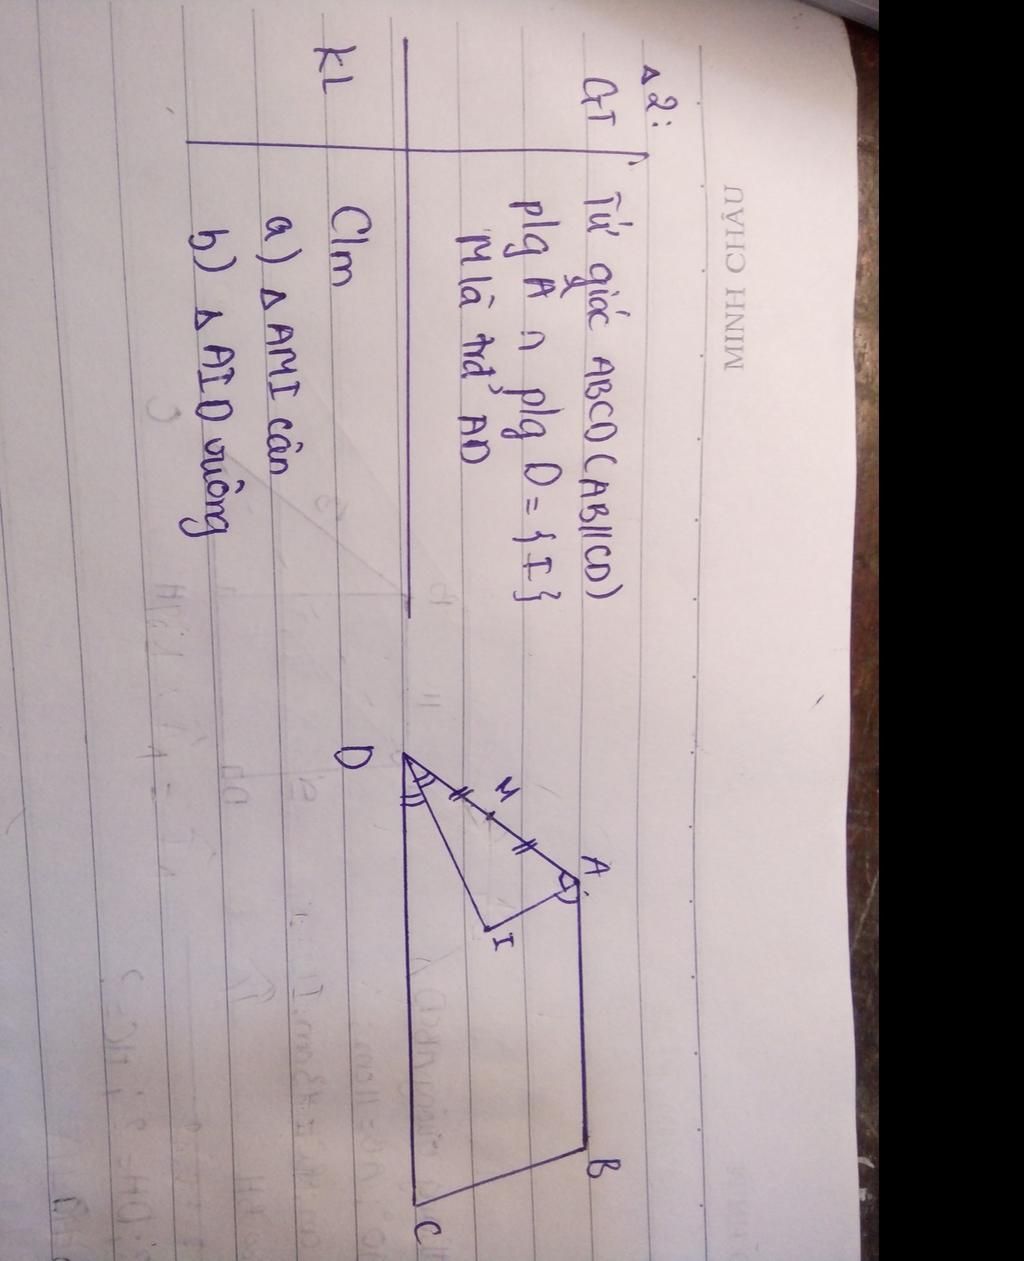 MINH CHÂU
▵2:
GT
Tứ giác ABCD (AB//CD)
p/g A ∩ p/g D = {I}
M là trđ AD
KL
C/m
a) ▵ AMI cân
b) ▵ AID vuông
A
B
M
I
D
C